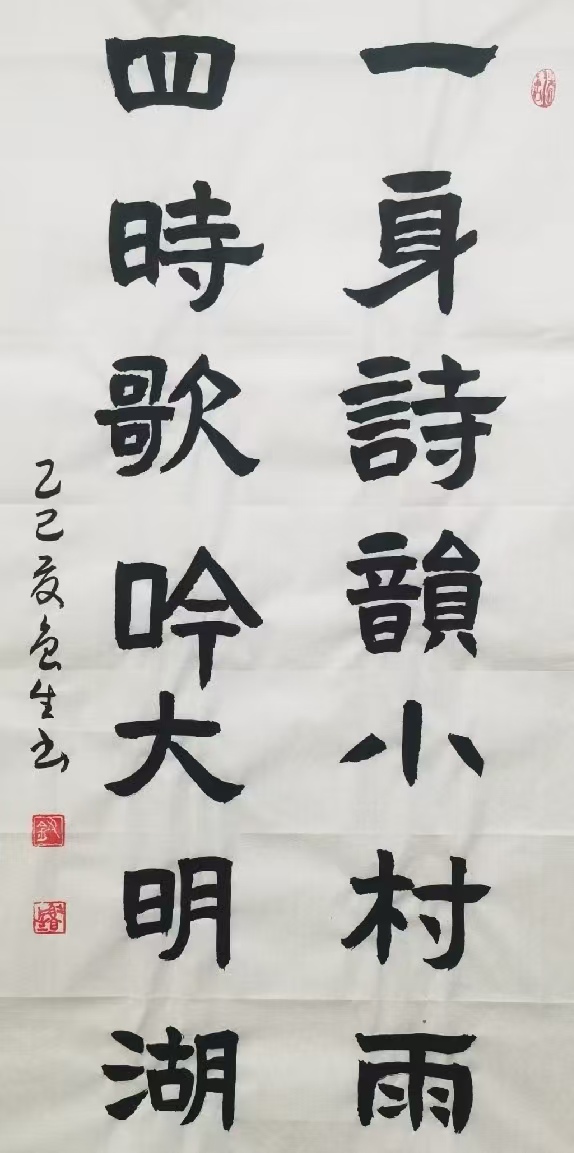 一身詩韻小村雨
四時歌吟大明湖
乙巳夏魚生书